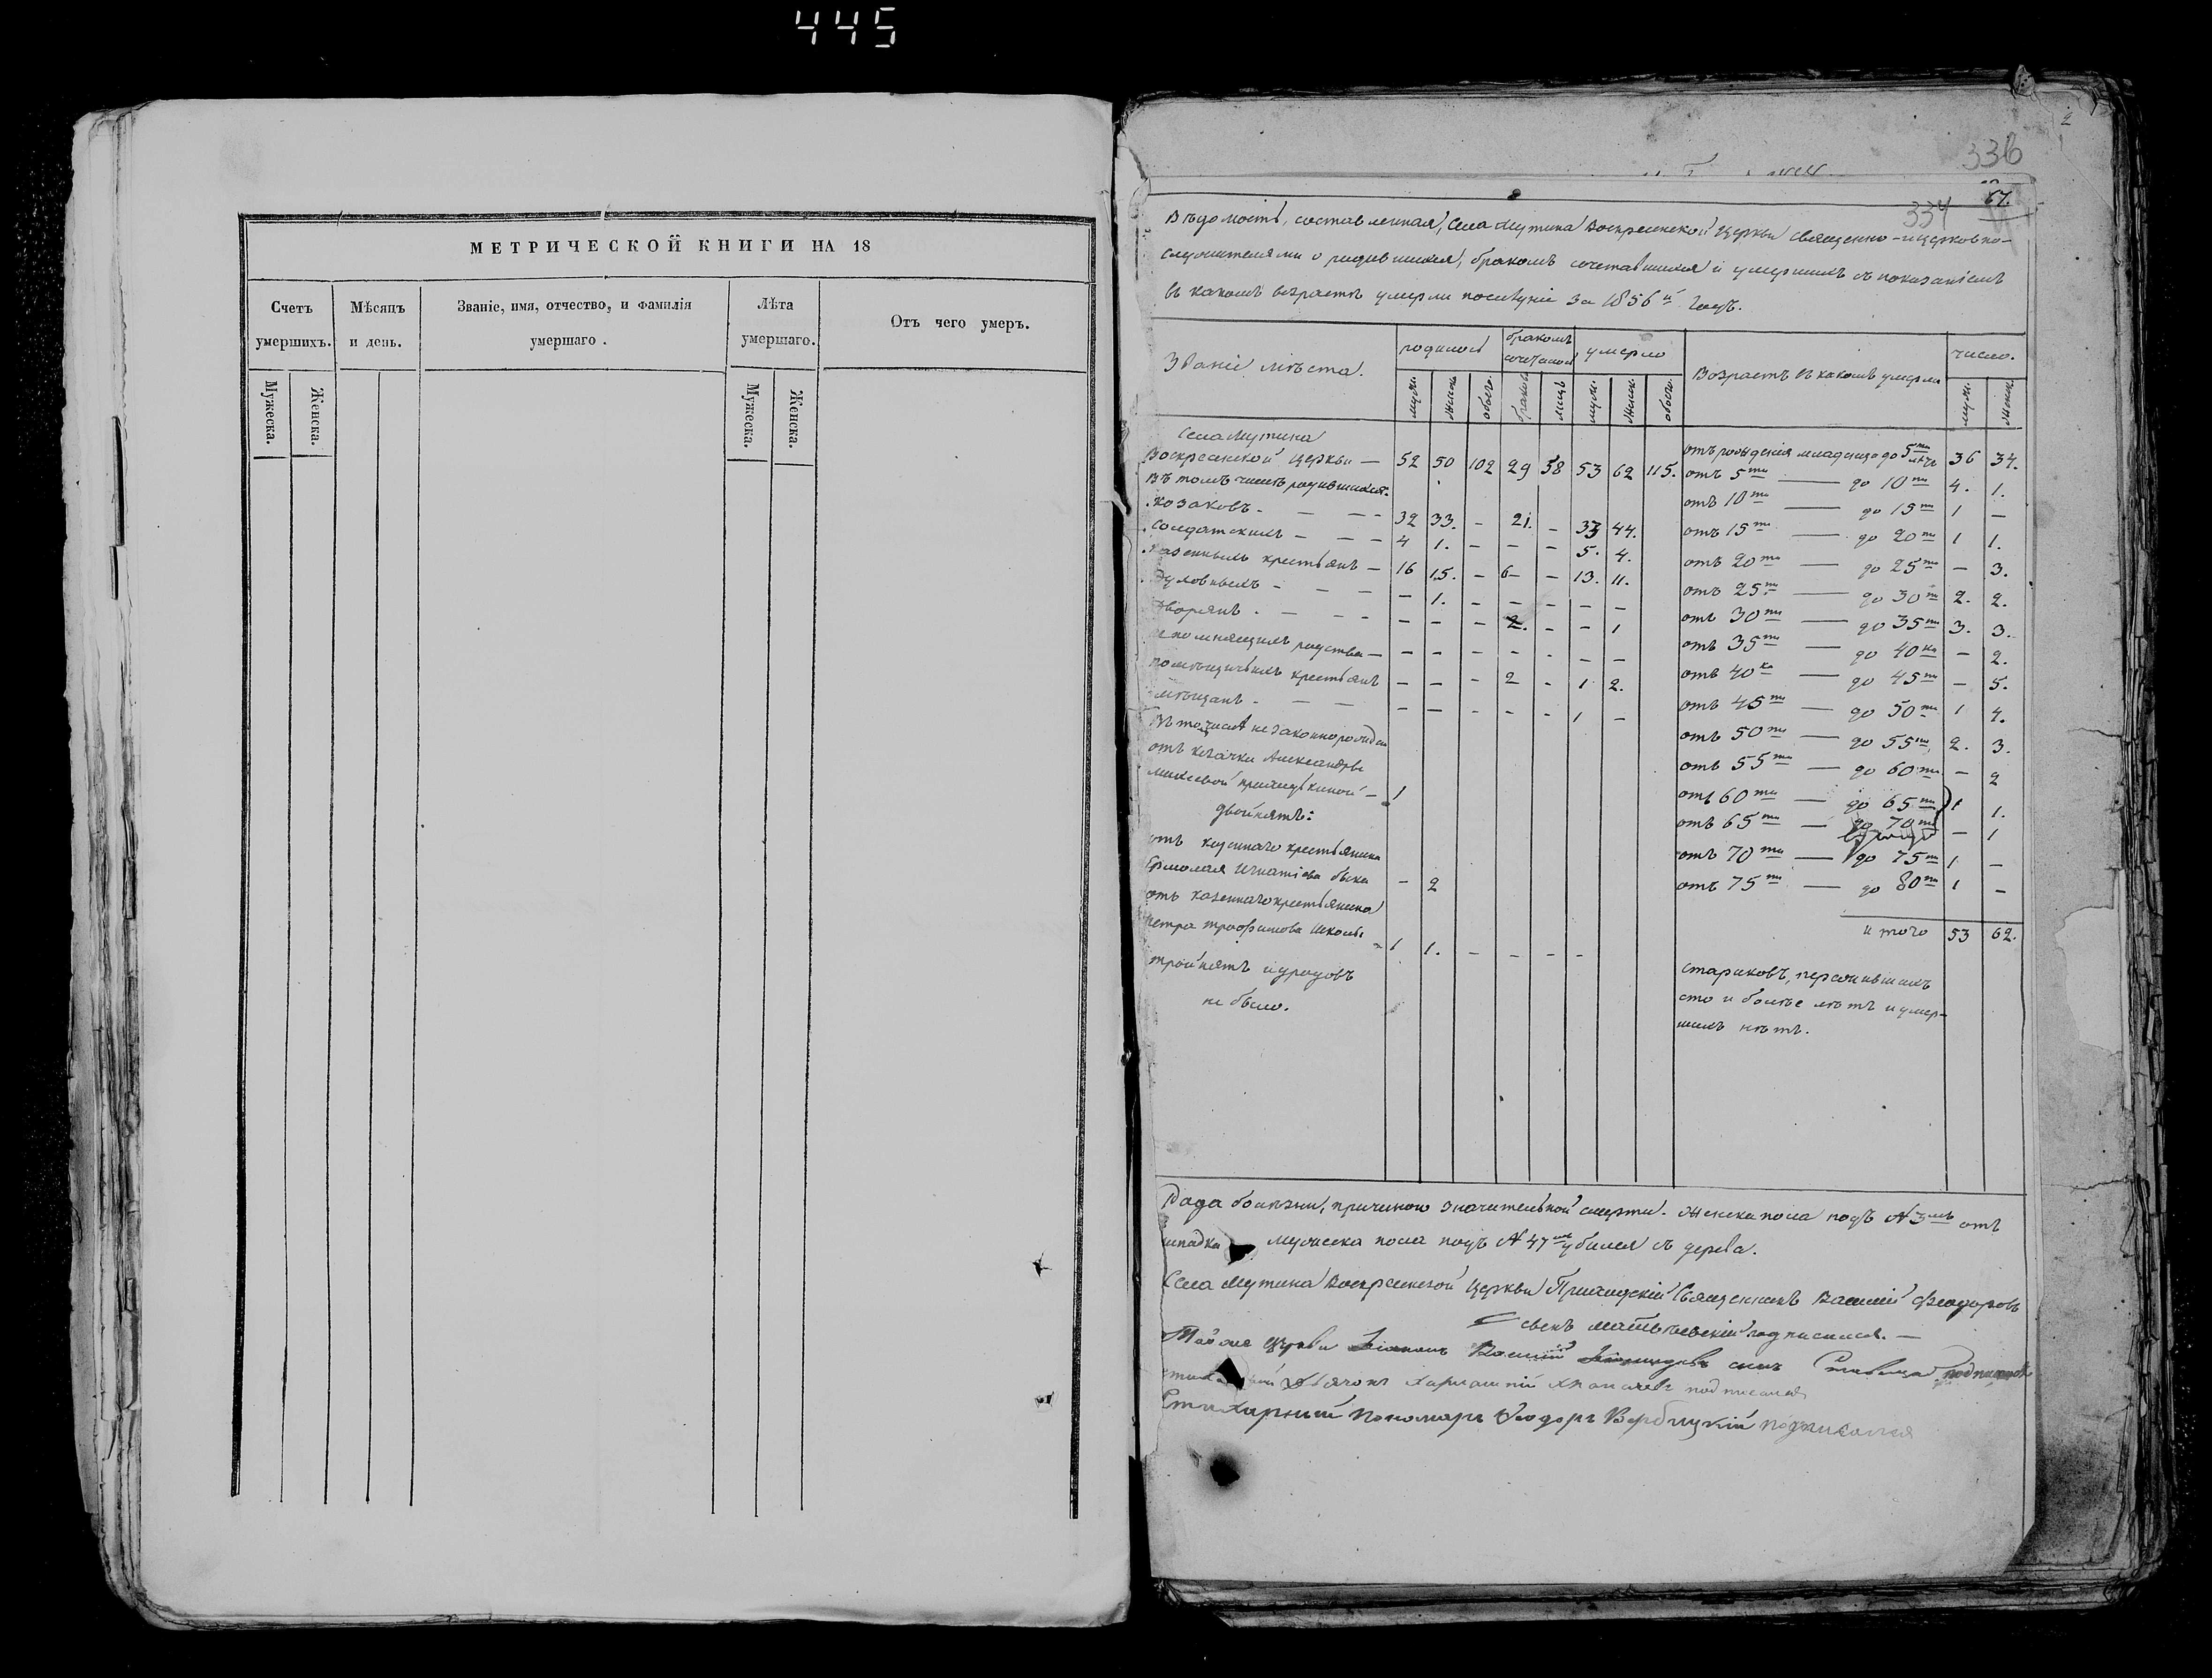 445
МЕТРИЧЕСКОЙ КНИГИ НА 18
Счетъ умершихъ.
Мѣсяцъ и день.
Званіе, имя, отчество, и фамилія умершаго.
Лѣта умершаго.
Отъ чего умеръ.
Мужеска.
Женска.
Мужеска.
Женска.
336
67.
334
Вѣдомость, составленная, села Мутина Воскресенской Церкви священно-и церковно-
служителями о родившихся, бракомъ сочетавшихся и умершихъ съ показаніемъ
въ какомъ возрастѣ умерли за 1856й годъ.
Званіе мѣста. родилось бракомъ умерло Возрастъ въ какомъ умерли число.
муж. женск. обоего. браковъ лицъ муж. женск. обоего. муж. женск.
Села Мутина
Воскресенской Церкви — 52 50 102 29 58 53 62 115.
въ томъ числѣ родившихся:
козаковъ - — — 32 33. - 21. - 33 44.
солдатскихъ - - - 4 1. - - - 5. 4.
казенныхъ крестьянъ — 16 15. - 6 - - 13. 11.
духовныхъ - - - - 1. - - - - -
дворянъ - - - - - - 2. - - 1
непомнящихъ родства — - - - - - - -
помѣщичьихъ крестьянъ - - - 2 - 1 2.
мѣщанъ - - - - - - - - 1 -
незаконнорожден
отъ козачки Александры
1
двойнятъ:
отъ казеннаго крестьянина
Ермолая Игнатіева - 2
отъ казеннаго крестьянина
Петра Трофимова 1 1. - - - -
тройнятъ и уродовъ
не было.
отъ рожденія младенца до 5ти лѣтъ 36 34.
отъ 5ти — до 10ти 4. 1.
отъ 10ти — до 15ти 1 —
отъ 15ти — до 20ти 1 1.
отъ 20ти — до 25ти — 3.
отъ 25ти — до 30ти 2. 2.
отъ 30ти — до 35ти 3. 3.
отъ 35ти — до 40ка — 2.
отъ 40ка — до 45ти — 5.
отъ 45ти — до 50ти 1 4.
отъ 50ти — до 55ти 2. 3.
отъ 55ти — до 60ти — 2
отъ 60ти — до 65ти 1 1.
отъ 65ти — до 70ти — 1
отъ 70ти — до 75ти 1 —
отъ 75ти — до 80ти 1 —
итого 53 62.
стариковъ, пережившихъ
сто и болѣе лѣтъ и умер-
шихъ нѣтъ.
Рода болѣзни, причиною значительной смерти. Женска пола подъ № 3мъ отъ
припадка мужеска пола подъ № 47мъ убился съ дерева.
Села Мутина Воскресенской Церкви Приходскій Священникъ Василій Феодоровъ
сынъ Матвѣевскій подписался. —
Тойже Церкви Василій сынъ подписался
Дьячокъ подписался
Стихарный Пономарь Феодоръ Вербицкій подписался